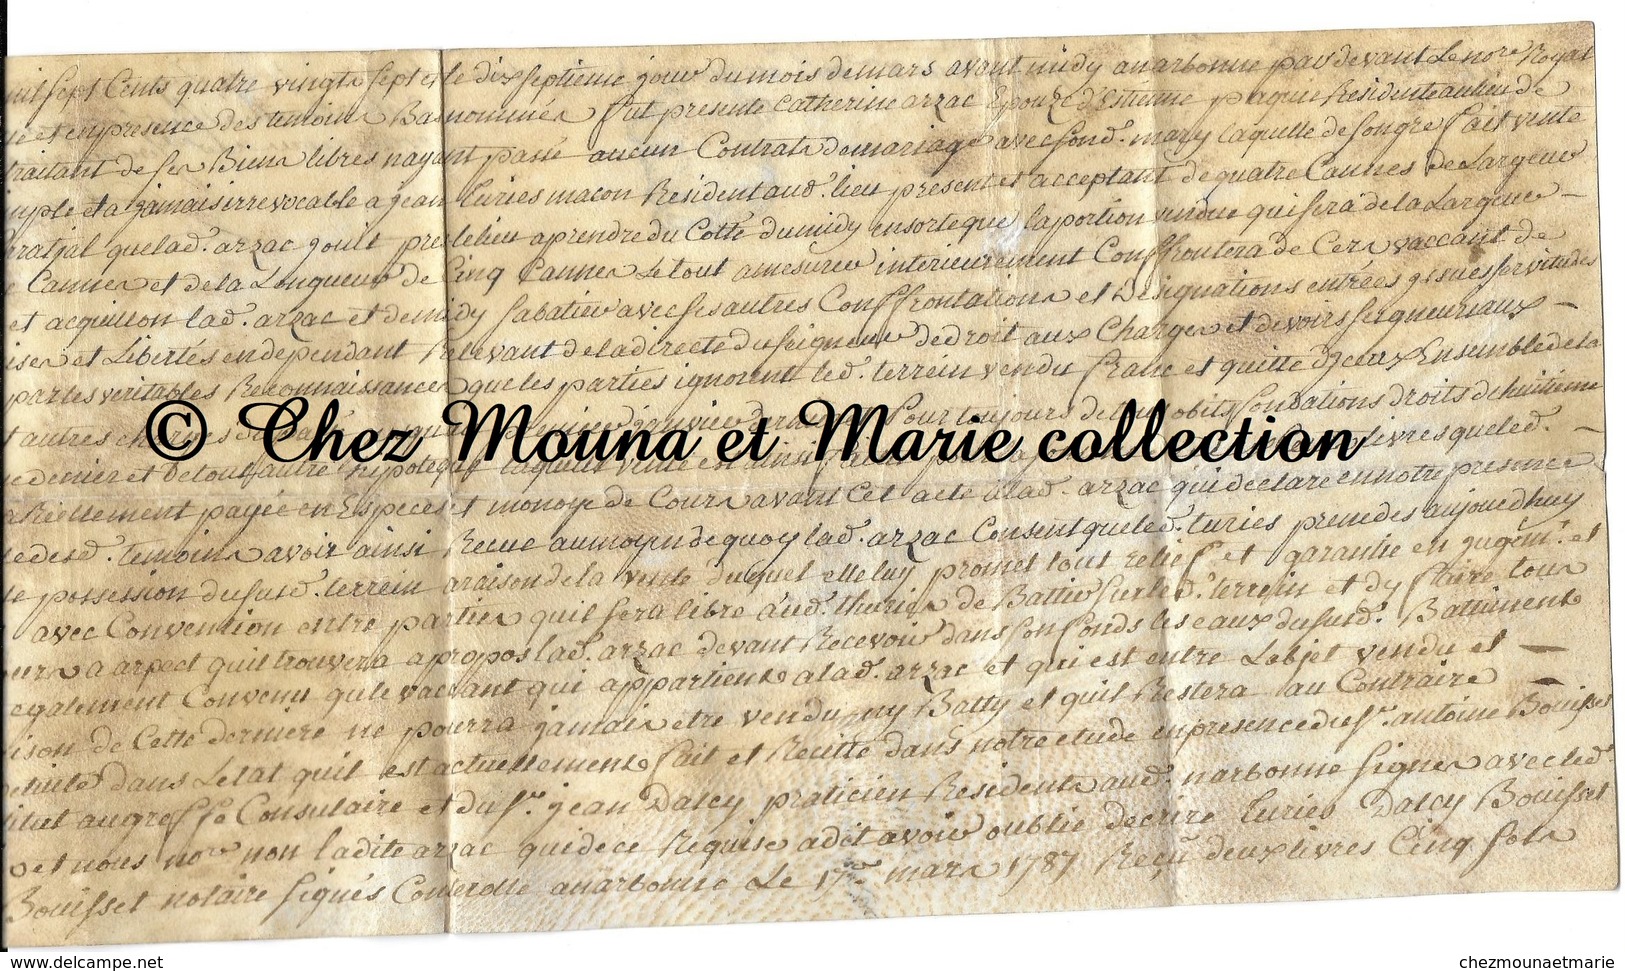 mil sept Cents quatre vingts sept et le dix septieme jour du mois de mars avant midy a narbonne par devant Le nore Royal
et en presence des temoins Bas nommés fut presente Catherine arzac Epouze d'Estienne paquie Residente au lieu de
traitant de ses Biens libres nayant passé aucun Contrat de mariage avec son d. mary laquelle de son gré fait vente
simple et a jamais irrevocable a jean turies macon Resident aud. lieu present et acceptant de quatre Cannes de Largeur
que lad. arzac jouit pres le lieu a prendre du Cotté du midy en sorte que la portion vendue qui sera de la Largeur
Cannes et de la Longueur de Cinq Cannes Le tout a mesurer interieurement Conffrontera de Cers vaccant de
et acquillon lad. arzac et de midy sabatier avec ses autres Conffrontations et Designations entrées issues servitudes
et Libertés en dependant Relevant de la directe du seigneur de droit aux Charges et devoirs seigneuriaux
par les veritables Reconnaissances que les parties ignorent led. terrein vendu franc et quitte d'Iceux Ensemble de la
et autres janvier dernier Pour toujours de obits fondations droits de huitieme
denier et de tout autre hipoteque laquelle vente est ainsi livres que led.
Réellement payée en Especes et monoye de Cours avant Cet acte a lad. arzac qui declare en notre presence
et desd. temoins avoir ainsi Recue au moyen de quoy lad. arzac Consent que led. turies prene des aujourdhuy
possession du susd. terrein a raison de la vente duquel elle luy promet tout relief et garantie en jugemt. et
avec Convention entre parties quil sera libre aud. thuries de Battir sur led. terrein et dy faire tour
aspect quil trouvera a propos lad. arzac devant Recevoir dans son fonds les eaux du susd. Battiment
egalement Convenu que le vaccant qui appartient a lad. arzac et qui est entre Lobjet vendu et
maison de Cette derniere ne pourra jamais etre vendu ny Batty et quil Restera au Contraire
dans Letat quil est actuellement fait et Recitté dans notre etude en presence du sr. antoine Bouisset
au greffe Consulaire et du sr. jean Dalcy praticien Residents aud. narbonne signés avec led.
et nous nore non ladite arzac qui de ce Requise a dit avoir oublié decrire turies Dalcy Bouisset
Bouisset notaire signés Controllé a narbonne Le 17e mars 1787 Reçu deux livres Cinq sols
© Chez Mouna et Marie collection
www.delcampe.net
chezmounaetmarie